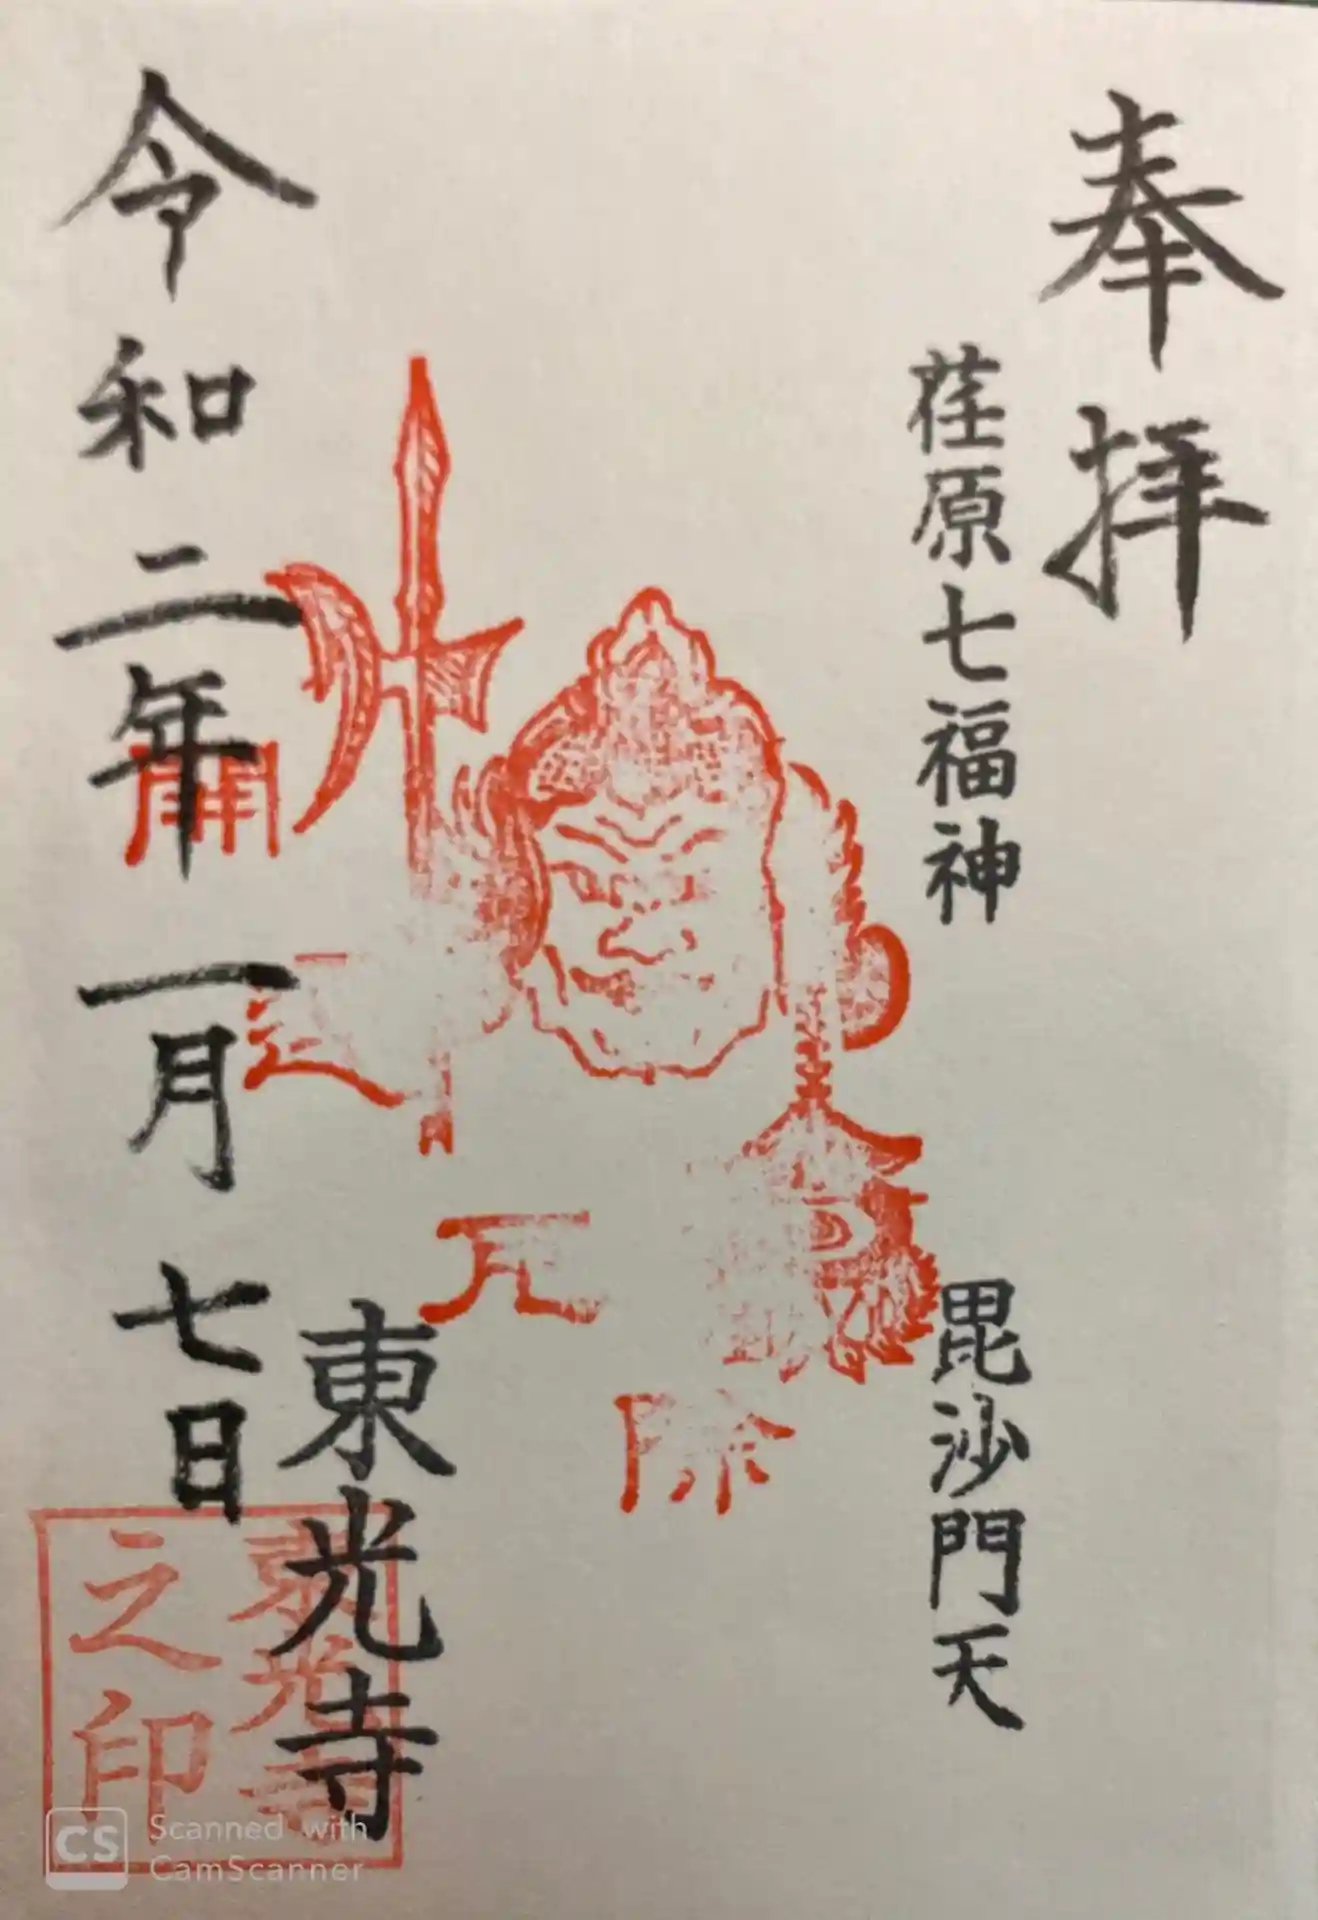 奉拝
荏原七福神
毘沙門天
除
東光寺
令和二年一月七日
東光寺
之印
CS Scanned with
CamScanner